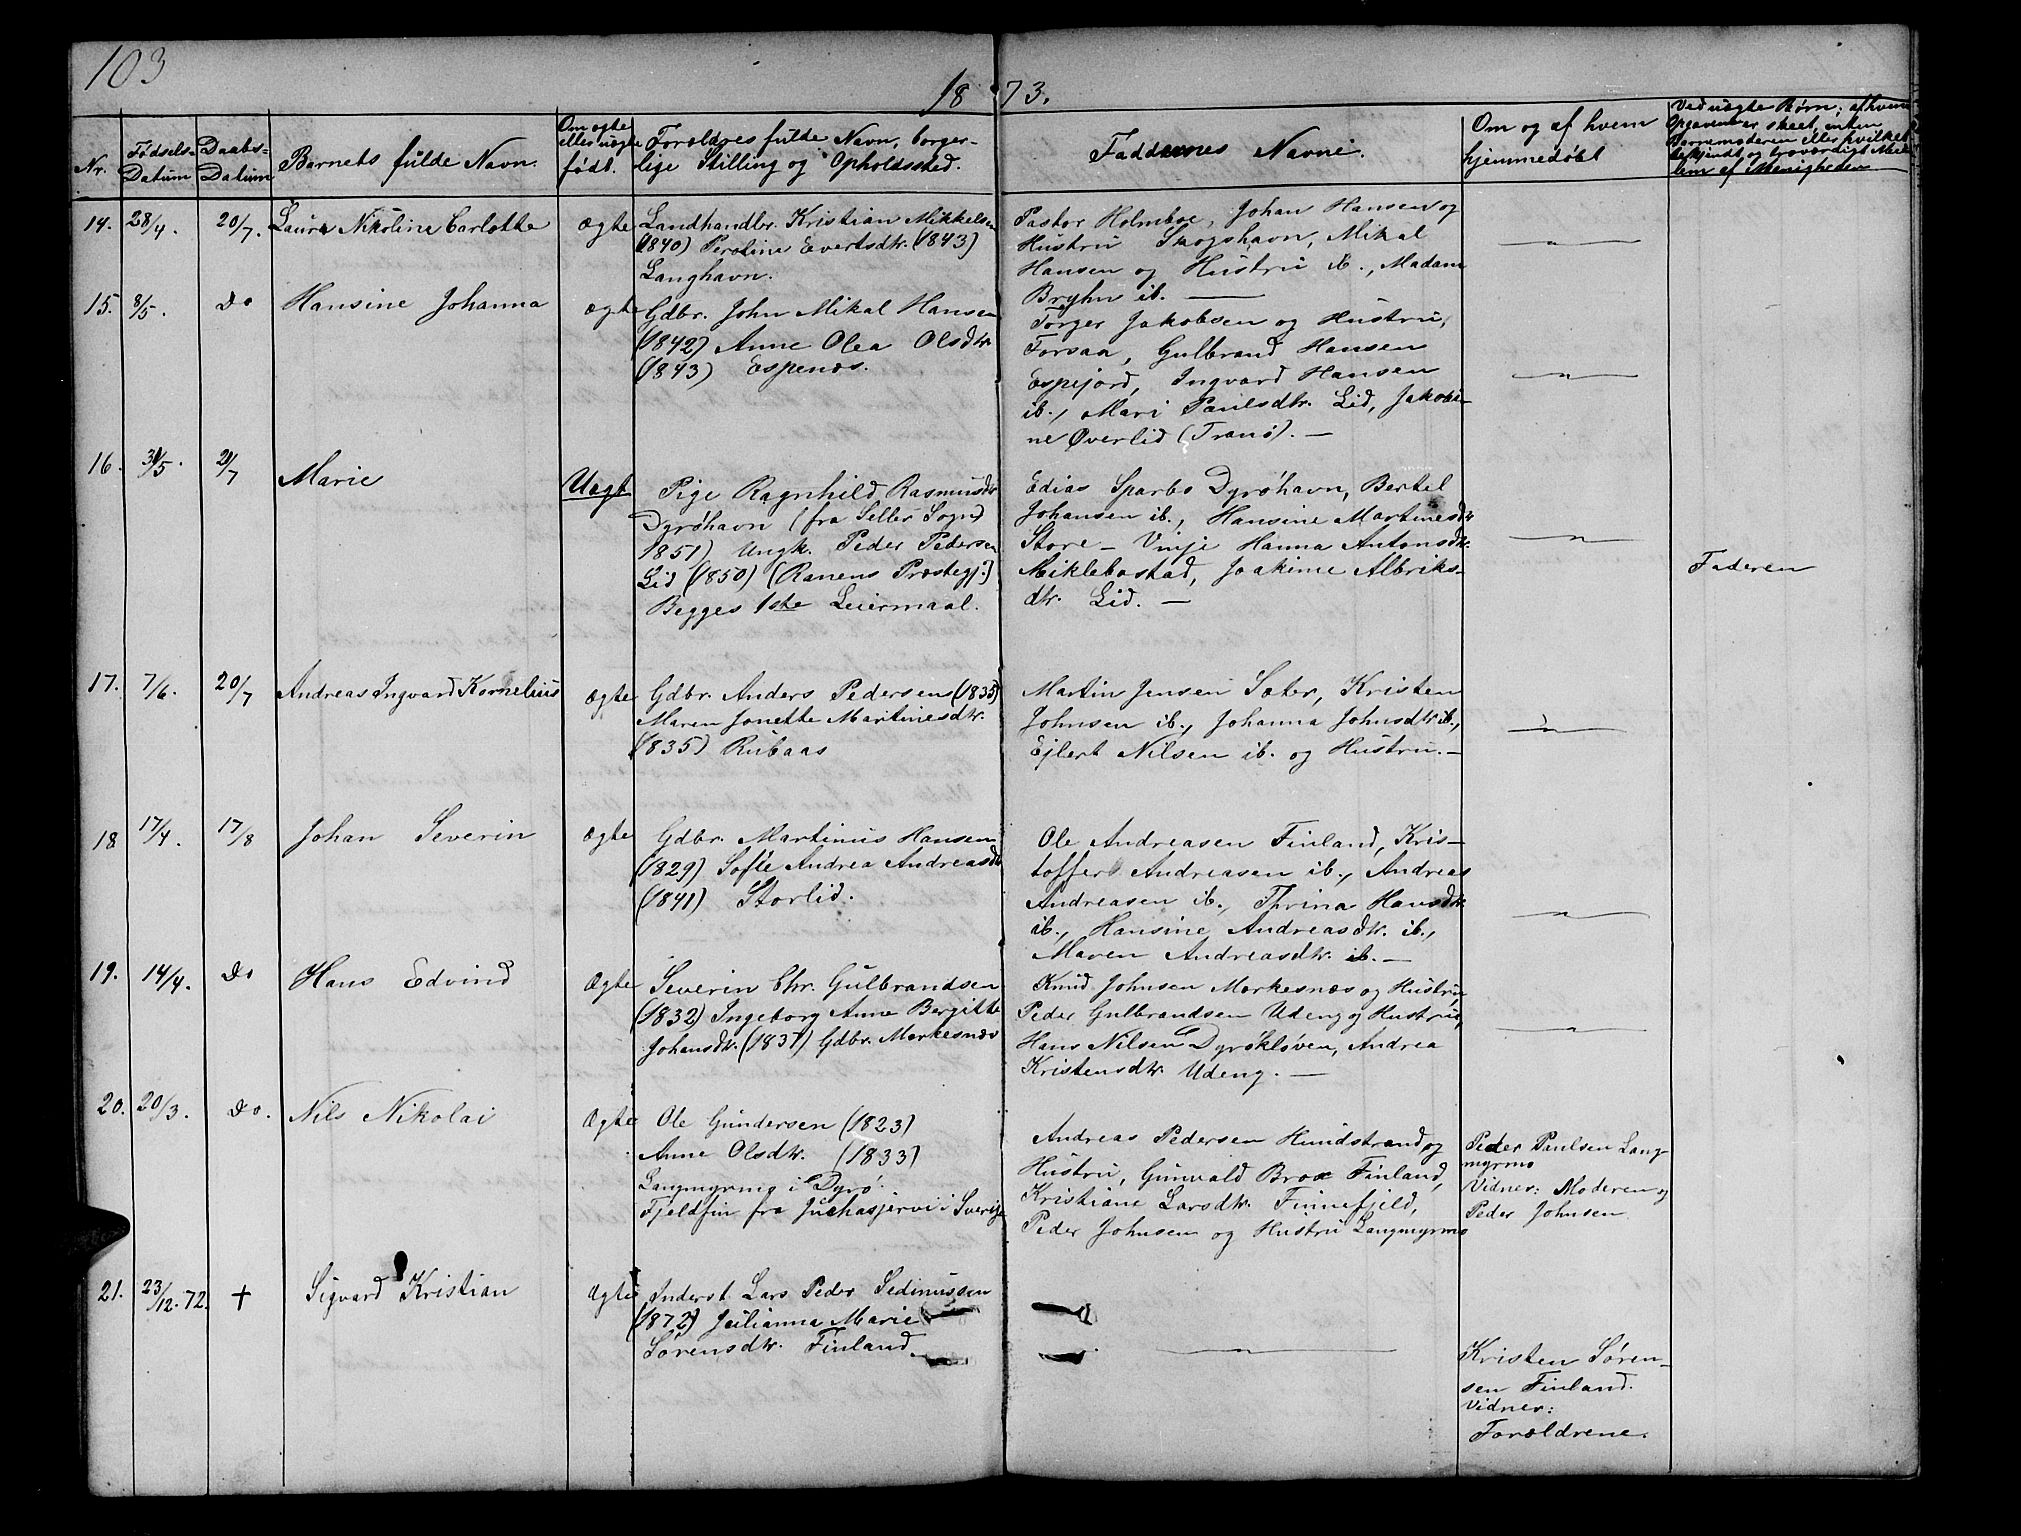 103
18 73.
Nr.
Fødsels-
Datum
Daabs-
Datum
Barnets fulde Navn.
Om ægte
eller uægte
født.
Forældres fulde Navn, borger-
lige Stilling og Opholdssted.
Faddernes Navne.
Om og af hvem
hjemmedøbt
Ved uægte Børn: af hvem
Opgaven er skeet, enten
Barnemoderen eller hvilket
bekjendt og troværdigt Med-
lem af Menigheden
14. 28/4. 20/7. Laura Nikoline Carlotte Ægte
Landhandlr. Kristian Mikkelsen
(1840) Peroline Evertsdtr. (1843)
Langhavn.
Pastor Holmboe, Johan Hansen og
Hustru Skogshavn, Mikal
Hansen og Hustru ib., Madam
Bryhn ib. —
15. 8/5. Do Hansine Johanna Ægte
Gdbr. John Mikal Hansen
(1842) Anne Olea Olsdtr
(1843) Espenæs.
Torger Jakobsen og Hustru,
Forsaa, Gulbrand Hansen
Espejord, Ingvard Hansen
ib., Mari Paulsdtr. Lid, Jakobi-
ne Øverlid (Tranø). —
16. 31/5. 21/7 Marie Uægt
Pige Ragnhild Rasmusdtr
Dyrøhavn (fra Selbr Sogn)
1851) Ungk. Peder Pedersen
Lid (1850) (Ranens Præstegj.)
Begges 1ste Leiermaal.
Edias Sparbo Dyrøhavn, Bertel
Johansen ib., Hansine Martinesdtr
Store-Vinje Hanna Antonsdtr.
Miklebostad, Joakime Albriks-
dtr. Lid. —
Faderen
17. 7/6. 20/7 Andreas Ingvard Kornelius Ægte
Gdbr. Anders Pedersen (1835)
Maren Jonette Martinesdtr.
(1835) Rubaas
Martin Jensen Sæter, Kristen
Johnsen ib., Johanna Johnsdtr ib.,
Ejlert Nilsen ib. og Hustru. —
18 17/4. 17/8 Johan Severin Ægte
Gdbr. Martinus Hansen
(1829) Sofie Andrea Andreasdtr
(1841) Storlid.
Ole Andreasen Finland, Kris-
toffer Andreasen ib., Andreas
Andreasen ib., Thrina Hansdtr
ib., Hansine Andreasdtr. ib.,
Maren Andreasdtr. ib. —
19. 14/4. Do Hans Edvind Ægte
Severin Chr. Gulbrandsen
(1832) Ingeborg Anne Bergitte
Johansdtr. (1837) Gdbr. Mørkesnæs
Knud Johnsen Mørkesnæs og Hustru,
Peder Gulbrandsen Udeng og Hustru,
Hans Nilsen Dyrøkløven, Andrea
Kristensdtr Udeng. —
20. 20/3. Do. Nils Nikolai Ægte
Ole Gundersen (1823)
Anne Olsdtr. (1833)
Langmyrmo i Dyrø.
Fjeldfin fra Juckasjervi i Sverige
Andreas Pedersen Hundstrand og
Hustru, Gunvald Brox Finland,
Kristiane Larsdtr. Finnefjeld,
Peder Johnsen og Hustru Langmyrmo
Peder Paulsen Lang-
myrmo
Vidner: Moderen og
Peder Johnsen
21. 23/12. 72. + Sigvard Kristian Ægte
Inderst. Lars Peder Sedinussen
(1872) Julianna Marie
Sørensdtr. Finland.
Kristen Søren-
sen Finland.
Vidner:
Forældrene.